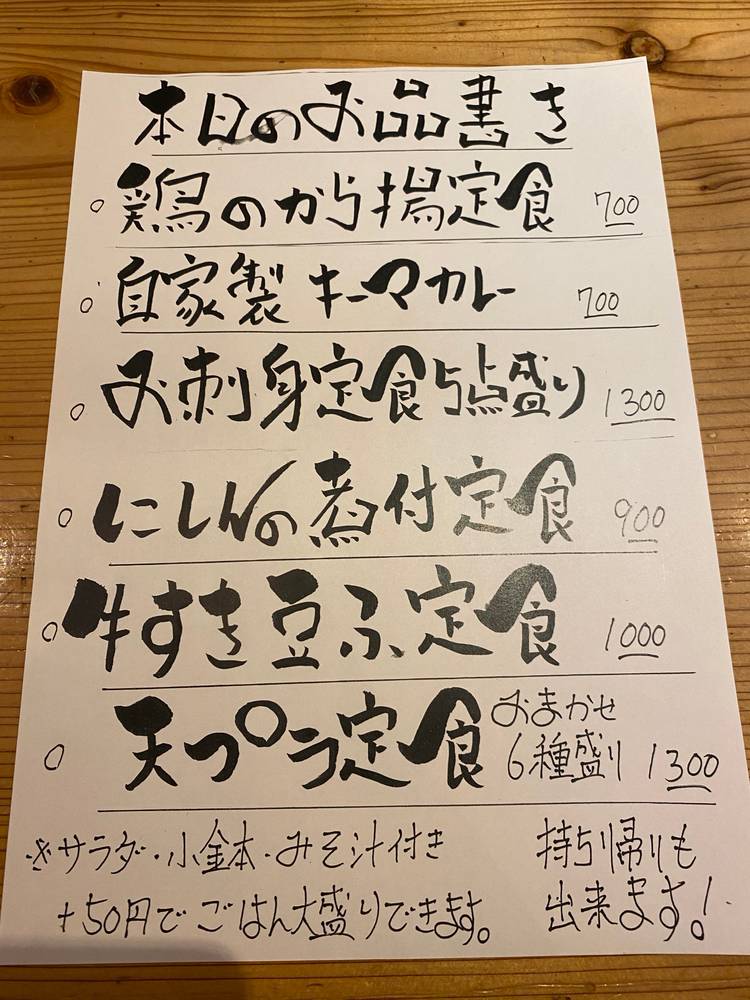 本日のお品書き
鶏のから揚定食 700
自家製キーマカレー 700
お刺身定食5点盛り 1300
にしんの煮付定食 900
牛すき豆ふ定食 1000
天プラ定食 おまかせ 6種盛り 1300
※サラダ・小金本・みそ汁付き
+50円でごはん大盛りできます。
持ち帰りも
出来ます!